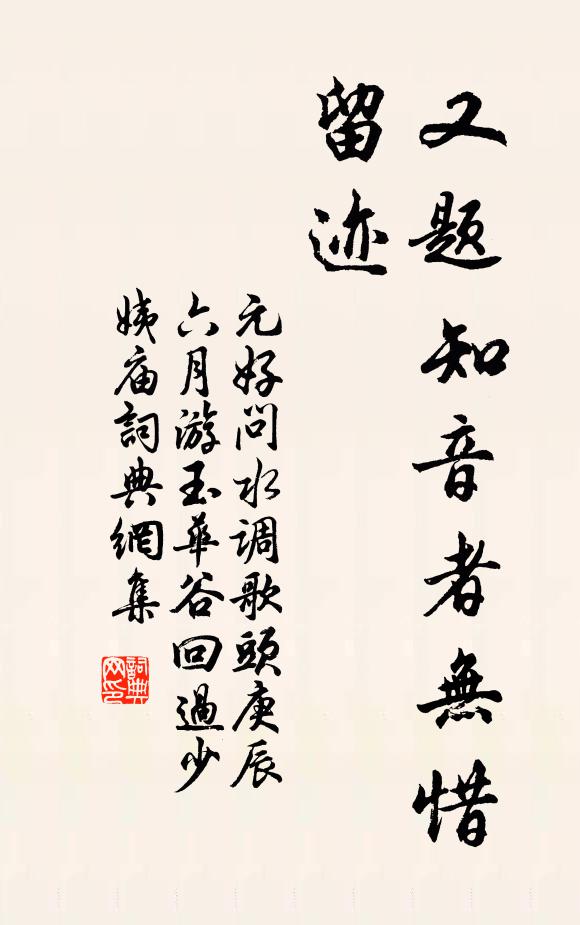 又题知音者無惜
留迹
元好问水调歌頭庚辰
六月游玉華谷回過少
姨庙詞典網集
詞典
网印